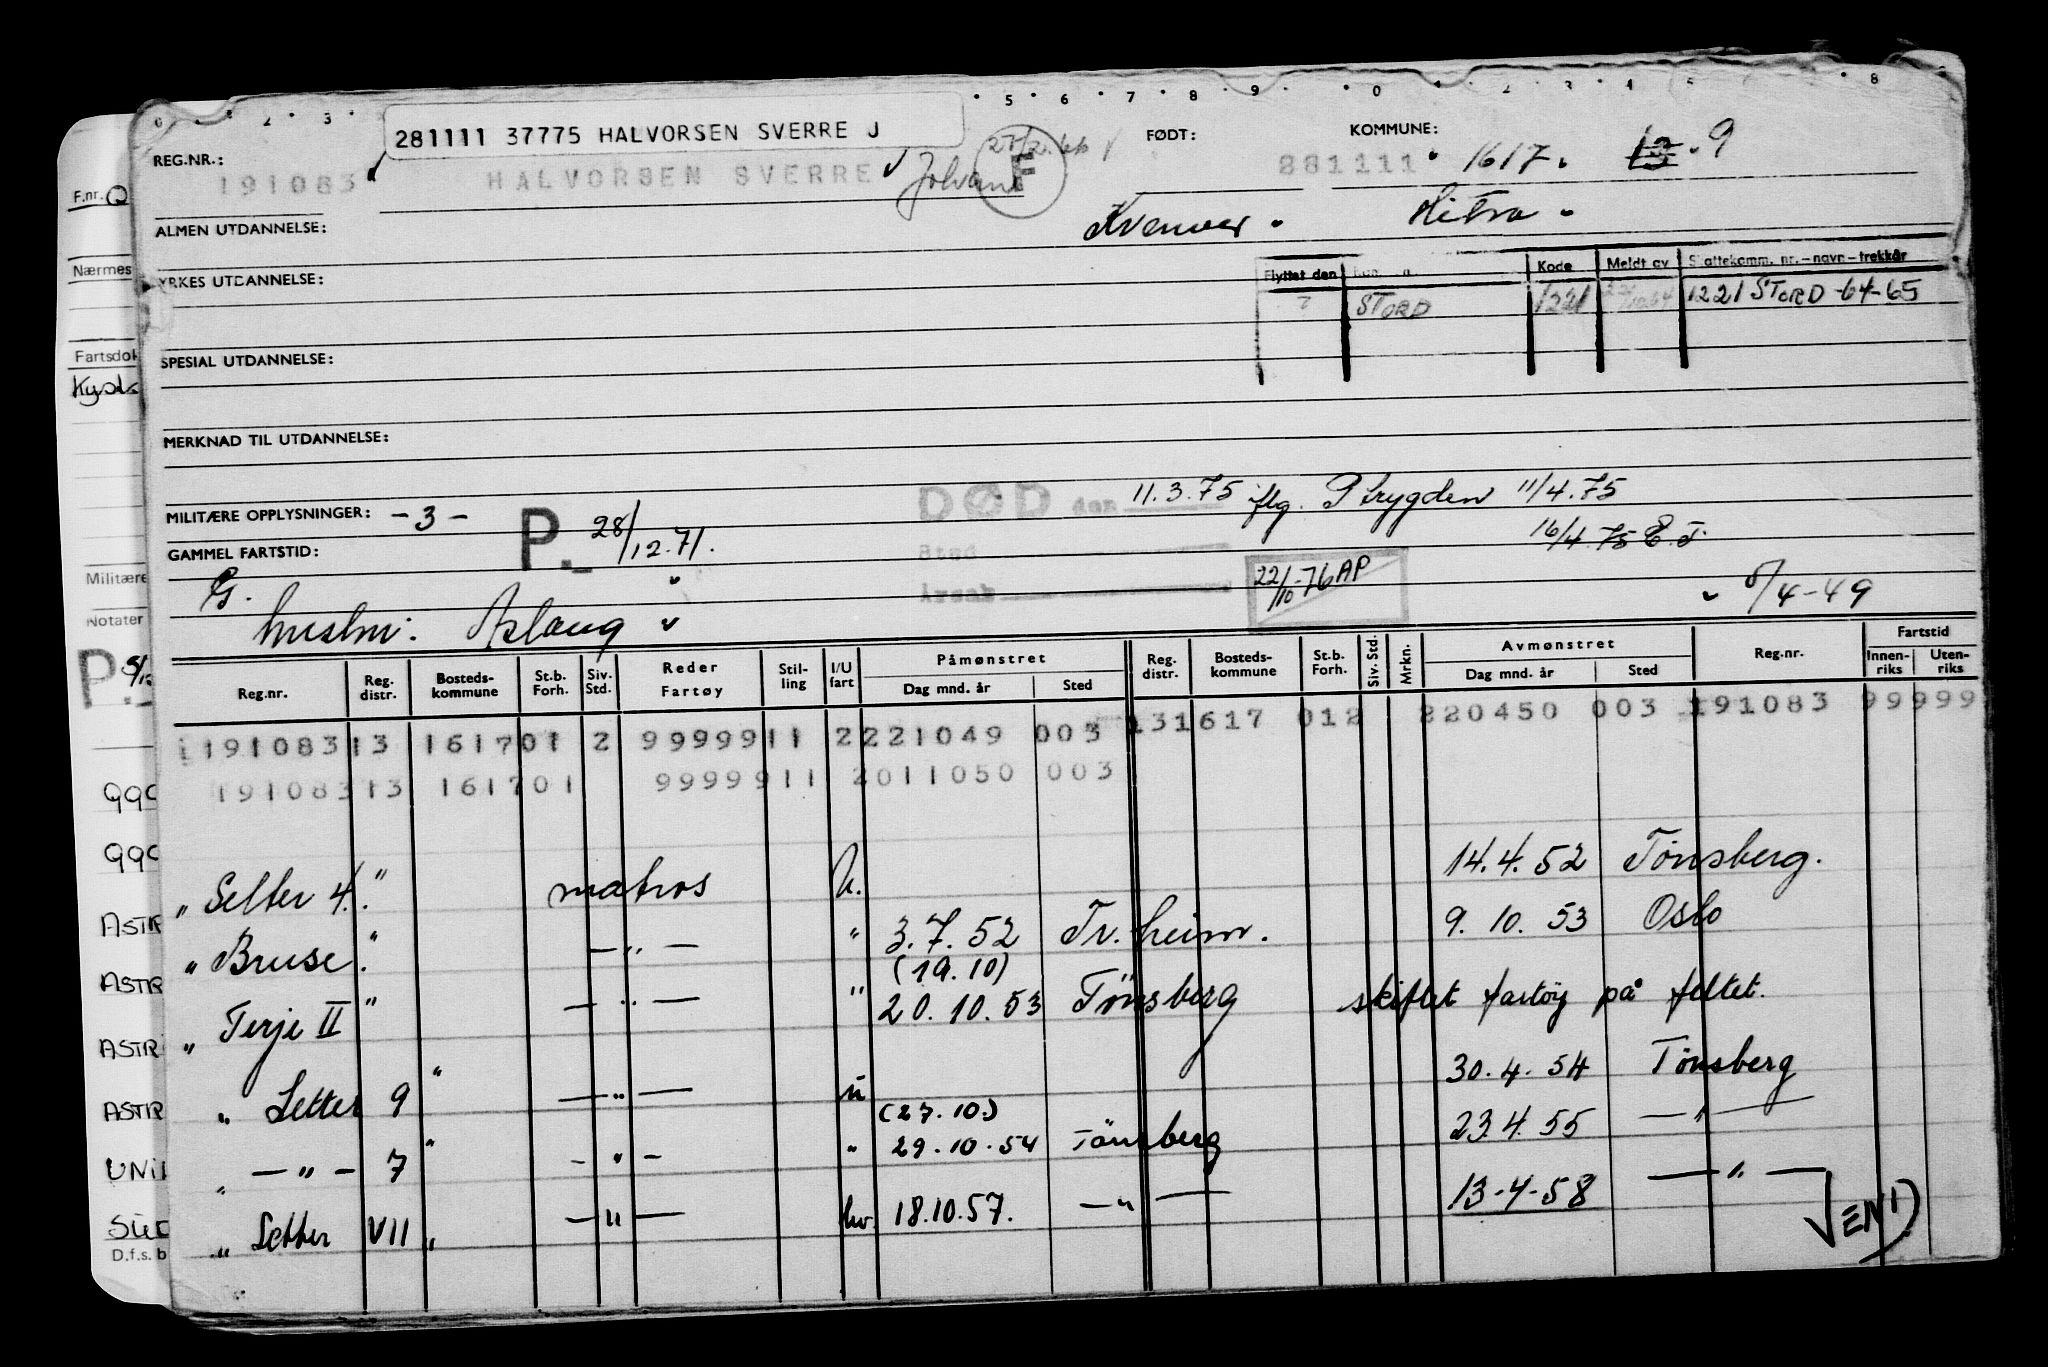 281111 37775 HALVORSEN SVERRE J
REG.NR.:
191083
HALVORSEN SVERRE
F
FØDT:
KOMMUNE:
881111
1617. 9
ALMEN UTDANNELSE:
Hitra
YRKES UTDANNELSE:
Flyttet den
Kode
Meldt av
Skattekomm. nr. – navn – trekkår
? STORD 1221
1221 STORD -64-65
SPESIAL UTDANNELSE:
MERKNAD TIL UTDANNELSE:
MILITÆRE OPPLYSNINGER: -3-
P. 28/12.71.
DØD den 11.3.75 iflg. P trygden 11/4.75
16/4.75 E.J.
GAMMEL FARTSTID:
Sted
Årsak
22/10-76 AP
hustru: Aslaug
/4-49
Reg.nr.
Reg. distr.
Bosteds-kommune
St.b. Forh.
Siv. Std.
Reder Fartøy
Stil-ling
I/U fart
Påmønstret
Dag mnd. år
Sted
Reg. distr.
Bosteds-kommune
St.b. Forh.
Siv. Std.
Mrkn.
Avmønstret
Dag mnd. år
Sted
Reg.nr.
Fartstid
Innen-riks
Uten-riks
191083 13 161701 2 9999911 2 221049 003 131617 012 220450 003 191083 99999
191083 13 161701 9999911 2011050 003
" Setter 4. " matros u. 14.4.52 Tønsberg.
" Bruse. " — " — " 3.7.52 Tr.heim. 9.10.53 Oslo
(19.10)
" Terje II " — " — " 20.10.53 Tønsberg skiftet fartøy på feltet.
" Setter 9 " — " — u 30.4.54 Tønsberg
(27.10.)
" — " — 7 " — " — " 29.10.54 Tönsberg 23.4.55 — " —
" Setter VII " — " — hv. 18.10.57. — " — 13-4-58 — " —
END
F.nr.
Nærmes
Fartsdok
Kys
Militære
Notater
P.
ASTR
ASTR
ASTRI
ASTR
UNI
D.f.s. b